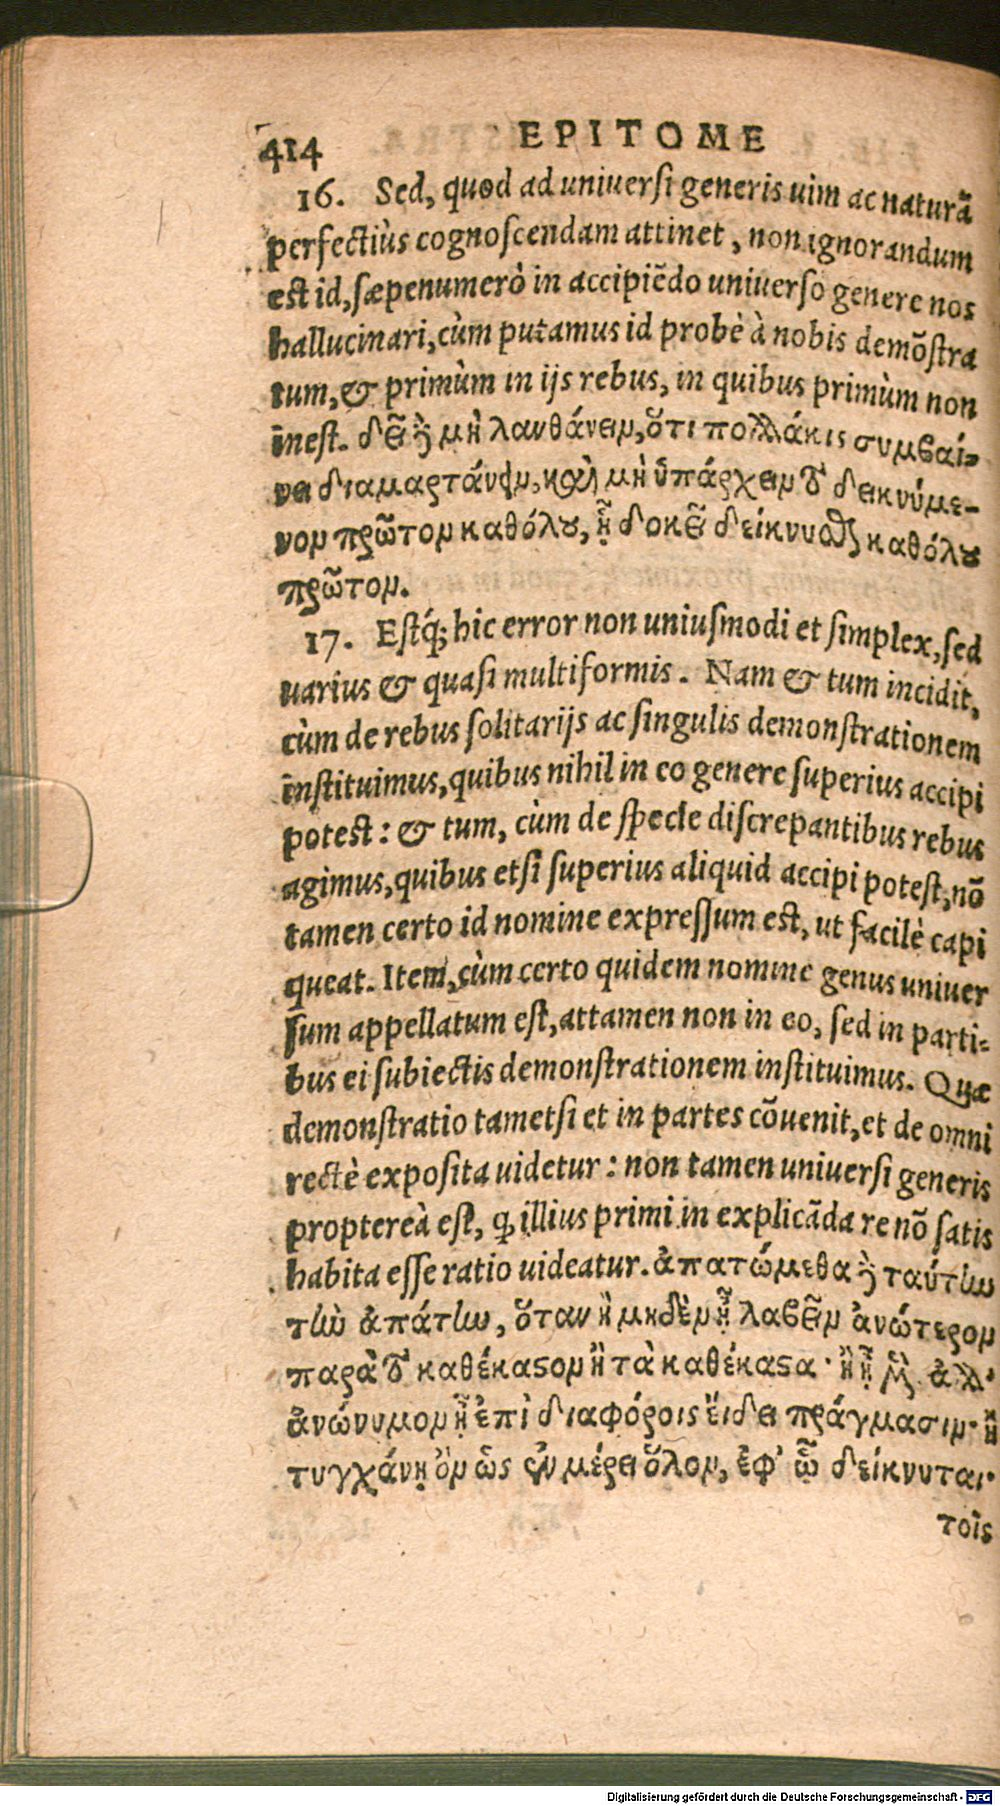 414 EPITOME
16. Sed, quod ad uniuersi generis uim ac naturã
perfectiùs cognoscendam attinet, non ignorandum
est id, sæpenumerò in accipiẽdo uniuerso genere nos
hallucinari, cùm putamus id probè à nobis demõstra
tum, & primùm in ijs rebus, in quibus primùm non
inest. δεῖ δὲ μὴ λανθάνειν, ὅτι πολλάκις συμβαί-
νει διαμαρτάνειν, καὶ μὴ ὑπάρχειν τὸ δεικνύμε-
νον πρῶτον καθόλου, ᾗ δοκεῖ δείκνυσθαι καθόλου
πρῶτον.
17. Estq́; hic error non uniusmodi et simplex, sed
uarius & quasi multiformis. Nam & tum incidit,
cùm de rebus solitarijs ac singulis demonstrationem
instituimus, quibus nihil in eo genere superius accipi
potest: & tum, cùm de specie discrepantibus rebus
agimus, quibus etsi superius aliquid accipi potest, nõ
tamen certo id nomine expressum est, ut facilè capi
queat. Item, cùm certo quidem nomine genus uniuer
sum appellatum est, attamen non in eo, sed in parti-
bus ei subiectis demonstrationem instituimus. Quæ
demonstratio tametsi et in partes cõuenit, et de omni
rectè exposita uidetur: non tamen uniuersi generis
proptereà est, ꝙ illius primi in explicãda re nõ satis
habita esse ratio uideatur. ἀπατώμεθα δὲ ταύτην
τὴν ἀπάτην, ὅταν ἢ μηδὲν ᾖ λαβεῖν ἀνώτερον
παρὰ τὸ καθέκαστον ἢ τὰ καθέκαστα· ἢ ᾖ μὲν, ἀλλ'
ἀνώνυμον ᾖ ἐπὶ διαφόροις εἴδει πράγμασιν· ἢ
τυγχάνῃ ὂν ὡς ἐν μέρει ὅλον, ἐφ' ᾧ δείκνυται·
τοῖς
Digitalisierung gefördert durch die Deutsche Forschungsgemeinschaft - DFG